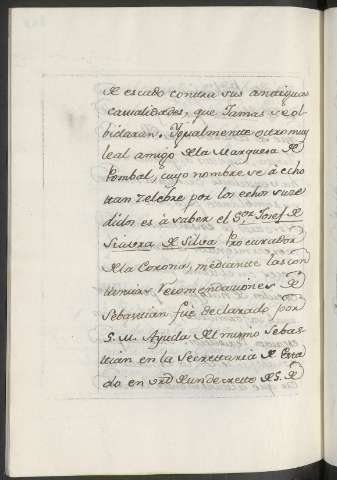 de escudo contra sus antiguas
casualidades, que Jamas se ol-
bidaran. Igualmente otro muy
leal amigo de la Marquesa de
Pombal, cuyo nombre se á echo
tan zelebre por los echos suze
didos es á saber el S.or Josef de
Seavra de Silva Procurador
de la Corona, mediante las con
tinuas recomendaciones de
Sebastian fue declarado por
S. M. Ayuda del mismo Sebas
tian en la Secretaria de Esta
do en de un decreto de S. de